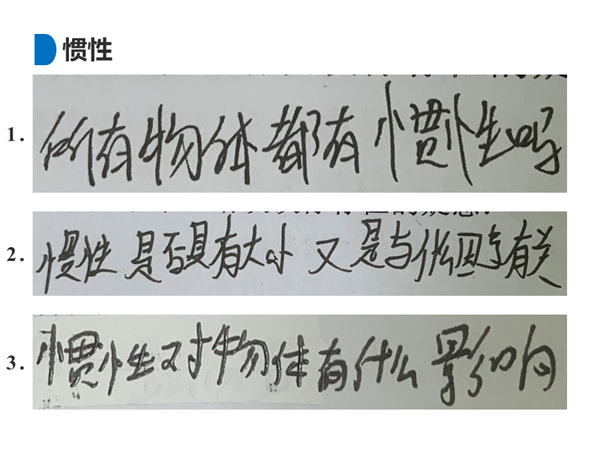 惯性
1. 所有物体都有惯性吗
2. 惯性是否具有大小 又是与什么因素有关
3. 惯性对物体有什么影响